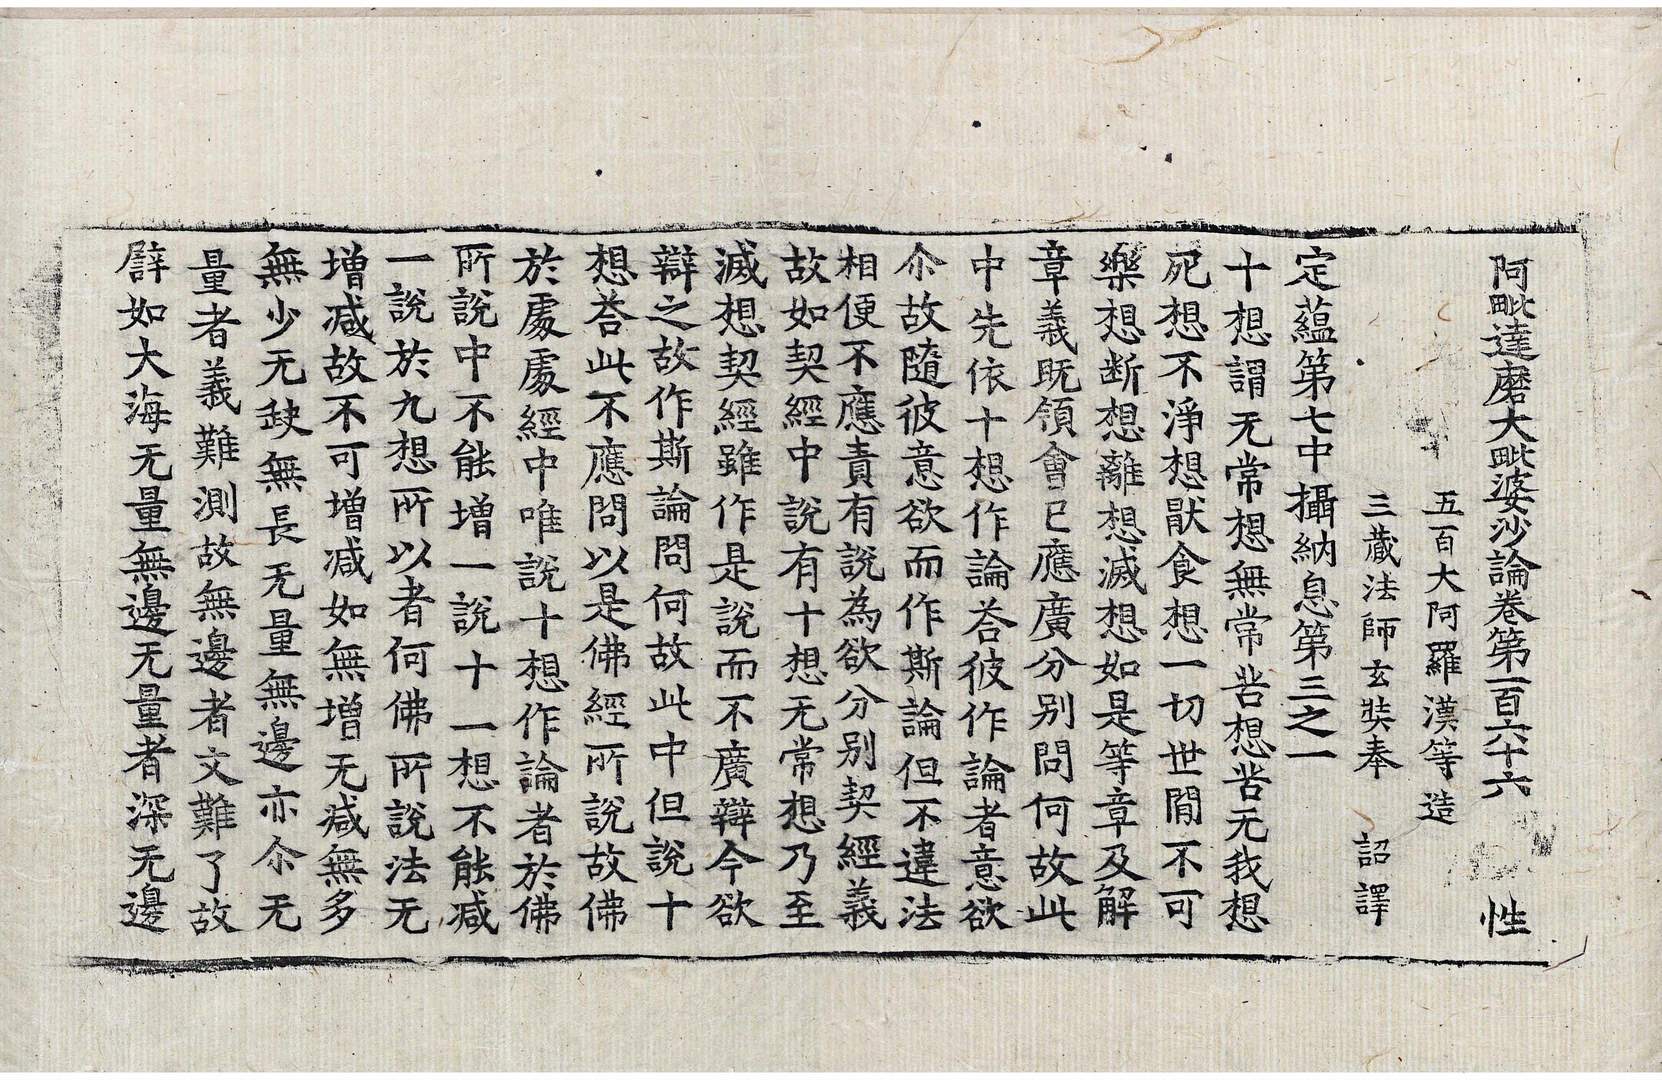 阿毗達磨大毗婆沙論卷第一百六十六 性
五百大阿羅漢等造
三藏法師玄奘奉 詔譯
定蘊第七中攝納息第三之一
十想謂无常想無常苦想苦无我想
死想不淨想猒食想一切世閒不可
樂想斷想離想滅想如是等章及解
章義既領會已應廣分別問何故此
中先依十想作論荅彼作論者意欲
尒故隨彼意欲而作斯論但不違法
相便不應責有說為欲分別契經義
故如契經中說有十想无常想乃至
滅想契經雖作是說而不廣辯今欲
辯之故作斯論問何故此中但說十
想荅此不應問以是佛經所說故佛
於處處經中唯說十想作論者於佛
所說中不能增一說十一想不能减
一說於九想所以者何佛所說法无
增减故不可增减如無增无减無多
無少无缺無長无量無邊亦尒无
量者義難測故無邊者文難了故
譬如大海无量無邊无量者深无邊